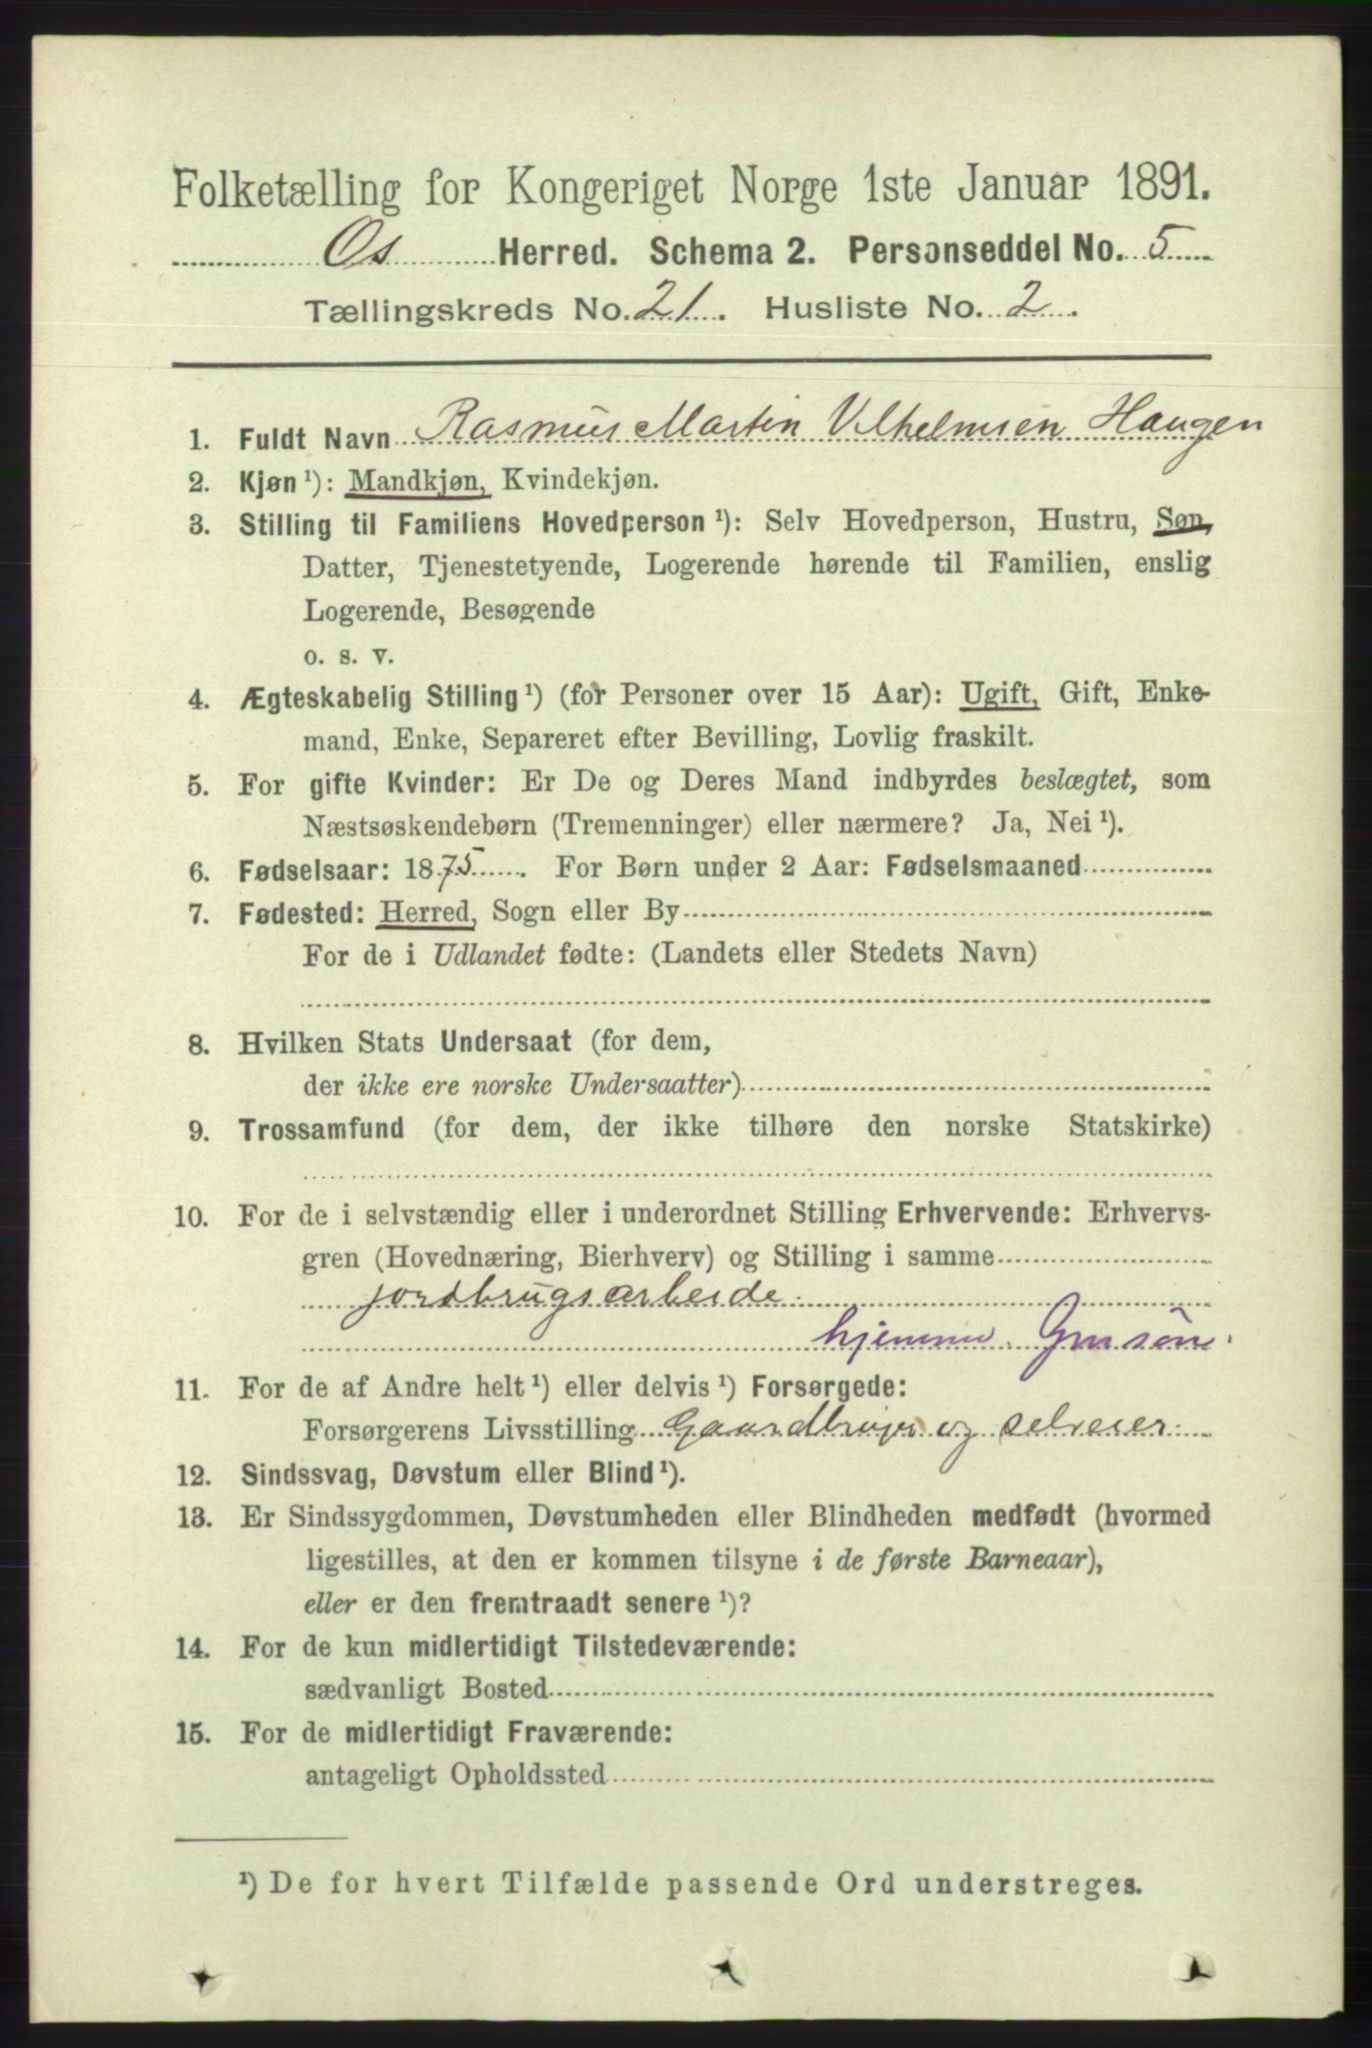 Folketælling for Kongeriget Norge 1ste Januar 1891.
Os Herred. Schema 2. Personseddel No. 5
Tællingskreds No. 21. Husliste No. 2.
1. Fuldt Navn Rasmus Martin Vilhelmsen Haugen
2. Kjøn ¹): Mandkjøn, Kvindekjøn.
3. Stilling til Familiens Hovedperson ¹): Selv Hovedperson, Hustru, Søn,
Datter, Tjenestetyende, Logerende hørende til Familien, enslig
Logerende, Besøgende
o. s. v.
4. Ægteskabelig Stilling ¹) (for Personer over 15 Aar): Ugift, Gift, Enke-
mand, Enke, Separeret efter Bevilling, Lovlig fraskilt.
5. For gifte Kvinder: Er De og Deres Mand indbyrdes beslægtet, som
Næstsøskendebørn (Tremenninger) eller nærmere? Ja, Nei ¹).
6. Fødselsaar: 1875. For Børn under 2 Aar: Fødselsmaaned
7. Fødested: Herred, Sogn eller By
For de i Udlandet fødte: (Landets eller Stedets Navn)
8. Hvilken Stats Undersaat (for dem,
der ikke ere norske Undersaatter)
9. Trossamfund (for dem, der ikke tilhøre den norske Statskirke)
10. For de i selvstændig eller i underordnet Stilling Erhvervende: Erhvervs-
gren (Hovednæring, Bierhverv) og Stilling i samme
jordbrugsarbeide
hjemme. Gmsøn.
11. For de af Andre helt ¹) eller delvis ¹) Forsørgede:
Forsørgerens Livsstilling Gaardbruger og selveier
12. Sindssvag, Døvstum eller Blind ¹).
13. Er Sindssygdommen, Døvstumheden eller Blindheden medfødt (hvormed
ligestilles, at den er kommen tilsyne i de første Barneaar),
eller er den fremtraadt senere ¹)?
14. For de kun midlertidigt Tilstedeværende:
sædvanligt Bosted
15. For de midlertidigt Fraværende:
antageligt Opholdssted
¹) De for hvert Tilfælde passende Ord understreges.